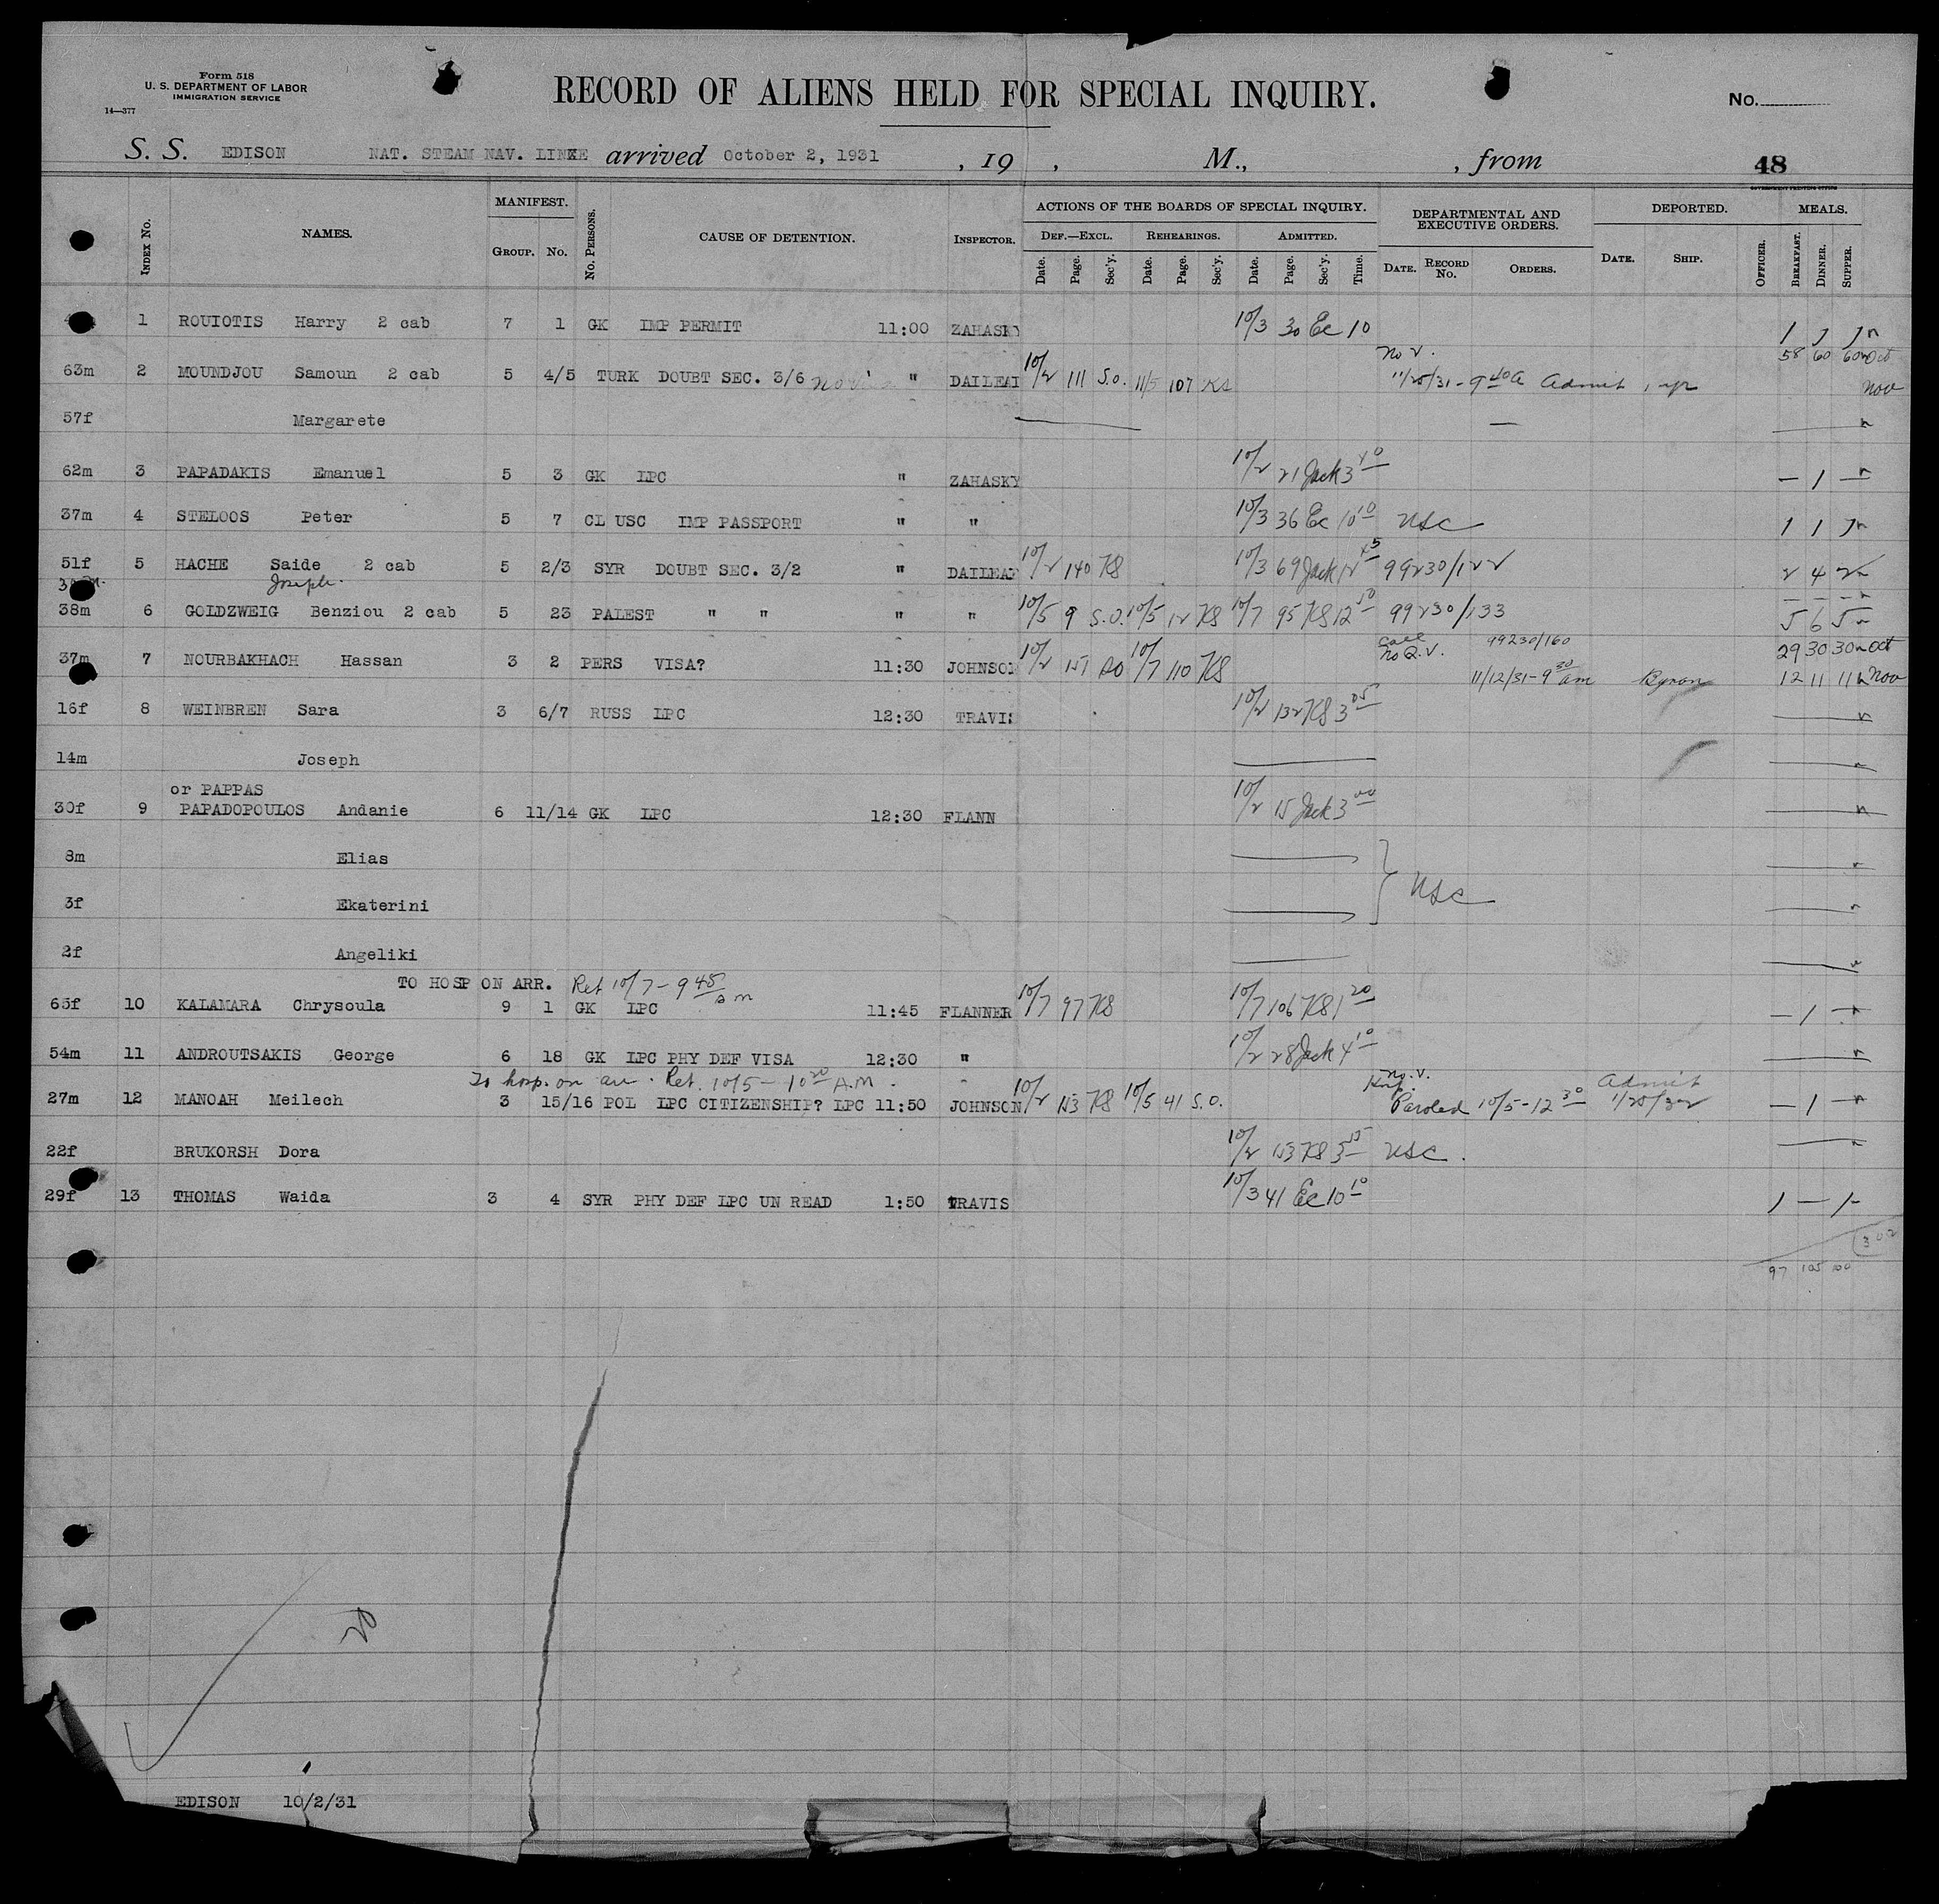 Form 518
U. S. DEPARTMENT OF LABOR
IMMIGRATION SERVICE
14—377
RECORD OF ALIENS HELD FOR SPECIAL INQUIRY.
No.
S. S. EDISON NAT. STEAM NAV. LINE arrived October 2, 1931 , 19 , M., , from 48
GOVERNMENT PRINTING OFFICE
INDEX NO. NAMES. MANIFEST. GROUP. NO. NO. PERSONS. CAUSE OF DETENTION. INSPECTOR. ACTIONS OF THE BOARDS OF SPECIAL INQUIRY. DEF.—EXCL. REHEARINGS. ADMITTED. DEPARTMENTAL AND EXECUTIVE ORDERS. DEPORTED. MEALS.
Date. Page. Sec'y. Date. Page. Sec'y. Date. Page. Sec'y. Time. DATE. RECORD NO. ORDERS. DATE. SHIP. OFFICER. BREAKFAST. DINNER. SUPPER.
1 ROUIOTIS Harry 2 cab 7 1 GK IMP PERMIT 11:00 ZAHASKY 10/3 30 Ec 10 1 1 1
No V. 58 60 60 Oct
63m 2 MOUNDJOU Samoun 2 cab 5 4/5 TURK DOUBT SEC. 3/6 no visa " DAILEAI 10/2 111 S.O. 11/5 107 KS 11/25/31 - 9 40 A Admit Nov
57f Margarete
62m 3 PAPADAKIS Emanuel 5 3 GK LPC " ZAHASKY 10/2 21 Jack 3 40 — 1 —
37m 4 STELOOS Peter 5 7 CL USC IMP PASSPORT " " 10/3 36 Ec 10 10 USC 1 1 1
51f 5 HACHE Saide 2 cab 5 2/3 SYR DOUBT SEC. 3/2 " DAILEAF 10/2 140 KS 10/3 69 Jack 12 45 99230/122 2 4 2
Joseph.
38m 6 GOLDZWEIG Benziou 2 cab 5 23 PALEST " " " " 10/5 9 S.O. 10/5 12 KS 10/7 95 KS 12 50 99230/133 5 6 5
Call 99230/160 29 30 30 Oct
37m 7 NOURBAKHACH Hassan 3 2 PERS VISA? 11:30 JOHNSON 10/2 151 SO 10/7 110 KS No Q.V. 11/12/31 - 9 30 am Byron 12 11 11 Nov
16f 8 WEINBREN Sara 3 6/7 RUSS LPC 12:30 TRAVIS 10/2 132 KS 3 05
14m Joseph
or PAPPAS
30f 9 PAPADOPOULOS Andanie 6 11/14 GK LPC 12:30 FLANN 10/2 15 Jack 3 00
8m Elias
3f Ekaterini USC
2f Angeliki
TO HOSP ON ARR. Ret 10/7 - 9 45 am
65f 10 KALAMARA Chrysoula 9 1 GK LPC 11:45 FLANNER 10/7 97 KS 10/7 106 KS 1 20 — 1 —
54m 11 ANDROUTSAKIS George 6 18 GK LPC PHY DEF VISA 12:30 " 10/2 28 Jack 4 10
To hosp. on arr. Ret. 10/5 - 10 20 A.M. No. V. Admit
27m 12 MANOAH Meilech 3 15/16 POL LPC CITIZENSHIP? LPC 11:50 JOHNSON 10/2 153 KS 10/5 41 S.O. Paroled 10/5 - 12 30 1/25/32 — 1 —
22f BRUKORSH Dora 10/2 153 KS 3 15 USC.
29f 13 THOMAS Waida 3 4 SYR PHY DEF LPC UN READ 1:50 TRAVIS 10/3 41 Ec 10 10 1 — 1
302
97 105 100
20
EDISON 10/2/31